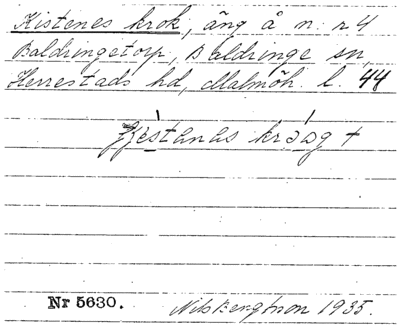 Kistenes krok, äng å n. r 4
Baldringetorp, Baldringe sn,
Herrestads hd, Malmöh. l. 44
krog +
Nr 5630. Nils Bengtson 1935.